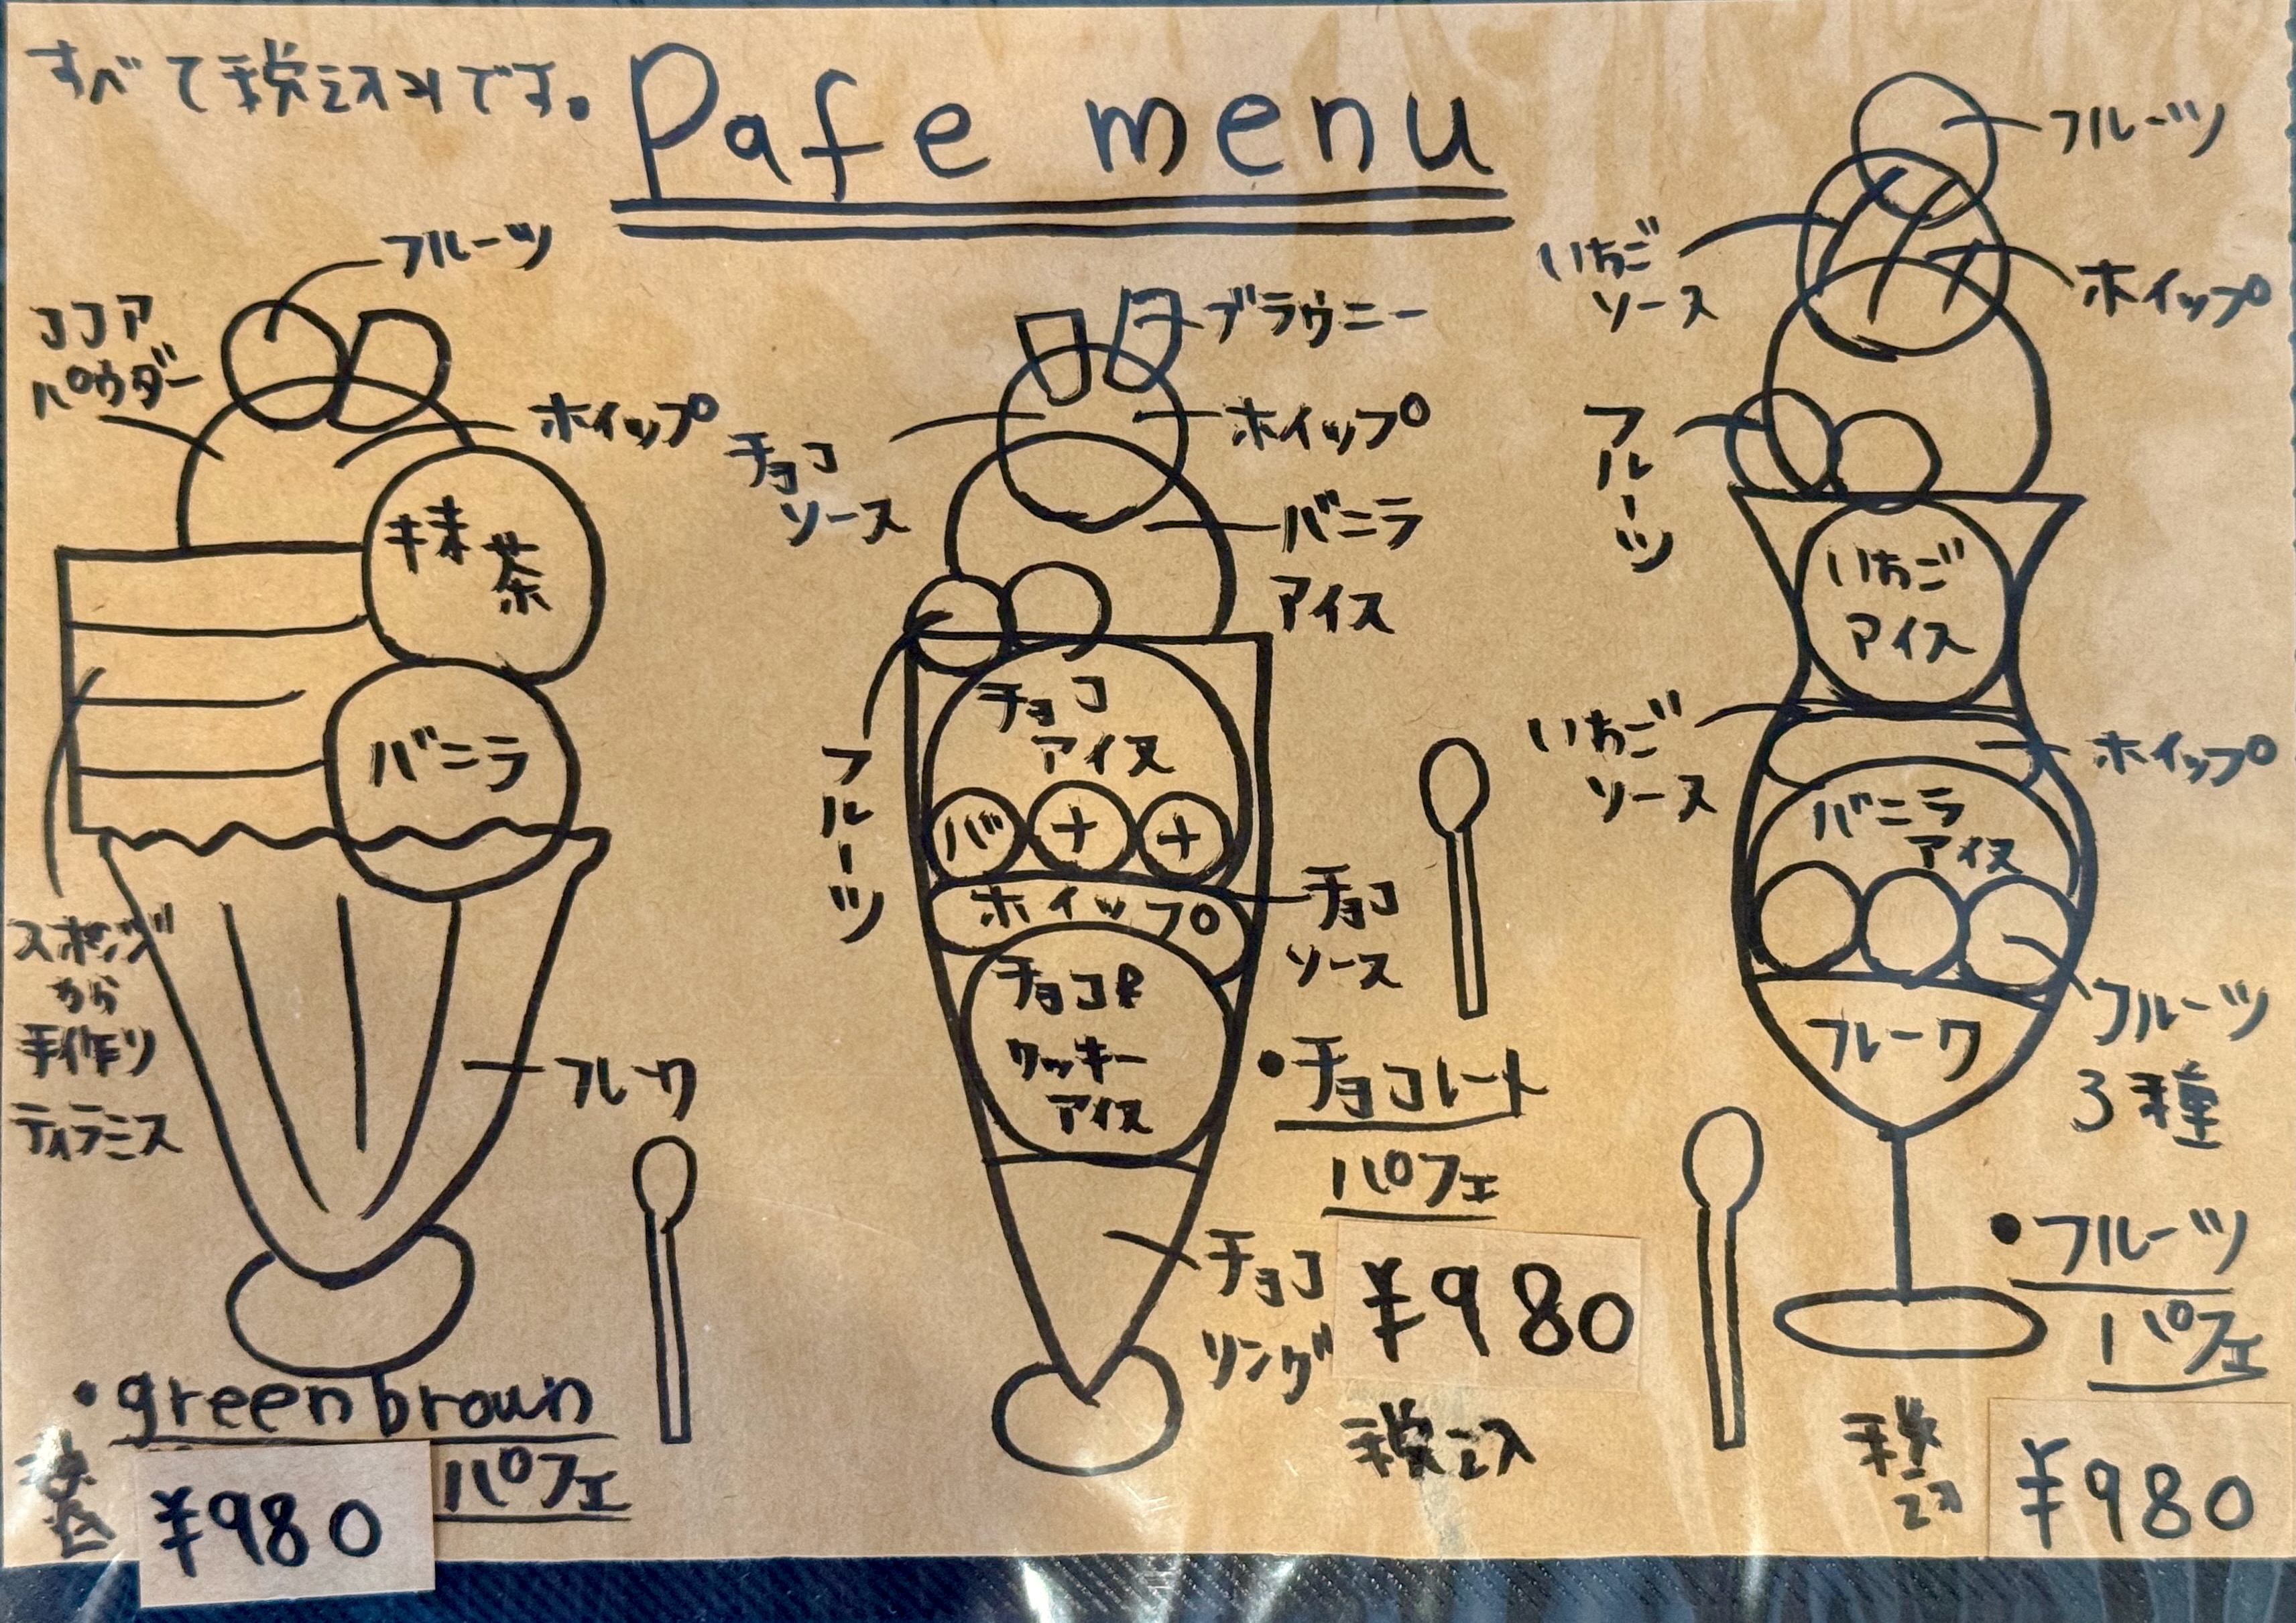 すべて税込みです。
Pafe menu
フルーツ
ココア
パウダー
ホイップ
抹
茶
バニラ
スポンジ
から
手作り
ティラミス
フレーク
・greenbrown
パフェ
税込
¥980
ブラウニー
チョコ
ソース
ホイップ
バニラ
アイス
フルーツ
チョコ
アイス
バ
ナ
ナ
ホイップ
チョコ
ソース
チョコ&
クッキー
アイス
チョコ
リング
・チョコレート
パフェ
¥980
税込
フルーツ
いちご
ソース
ホイップ
フルーツ
いちご
アイス
いちご
ソース
ホイップ
バニラ
アイス
フルーツ
3種
フレーク
・フルーツ
パフェ
税
込
¥980